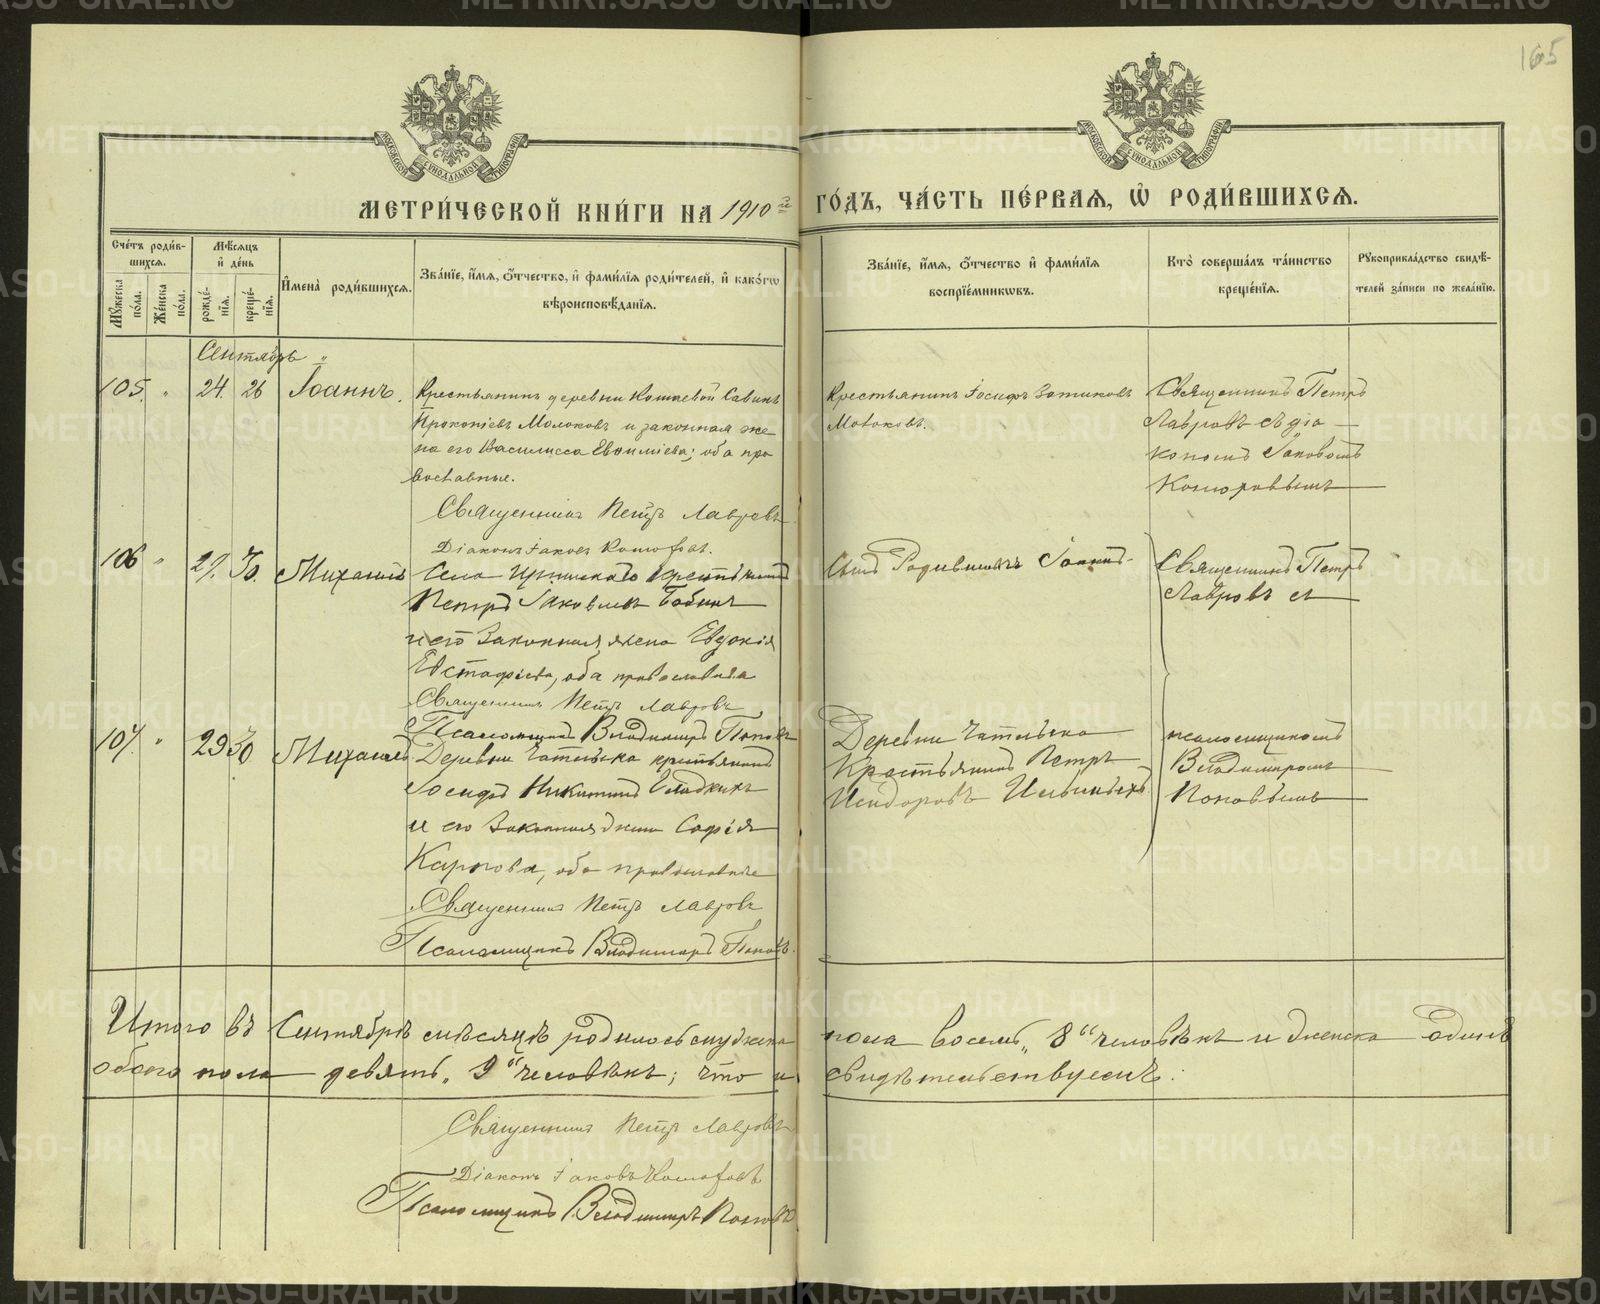 165
МОСКОВСКОЙ СѴНОДАЛЬНОЙ ТИПОГРАФІИ
МОСКОВСКОЙ СѴНОДАЛЬНОЙ ТИПОГРАФІИ
МЕТРИ́ЧЕСКОЙ КНИ́ГИ НА 1910 й ГО́ДЪ, ЧА́СТЬ ПЕ́РВАЯ, Ѡ҆ РОДИ́ВШИХСЯ.
Сче́тъ роди́в-
шихся.
Мꙋ́жеска по́ла.
Же́нска по́ла.
Мѣ́сяцъ
и҆ де́нь
рожде́-
нія.
креще́-
нія.
И҆мена̀ роди́вшихся.
Зва́нїе, и҆́мя, ѻ҆́тчество, и҆ фами́лїя роди́телей, и҆ како́гѡ
вѣроисповѣ́данїя.
Зва́нїе, и҆́мя, ѻ҆́тчество и҆ фами́лїя
воспрїе́мникѡвъ.
Кто̀ соверша́лъ та́инство
креще́нїя.
Рꙋкоприкла́дство свидѣ́-
телей за́писи по жела́нїю.
Сентябрь „
105. „ 24. 26 Іоаннъ.
Крестьянинъ деревни Савинъ
Прокопіевъ Молоковъ и законная же
на его Василисса Евѳиміева; оба пра
вославные.
Священникъ Петръ Лавровъ
Діаконъ Іаковъ
Крестьянинъ Іосифъ Зотиковъ
Молоковъ.
Священникъ Петръ
Лавровъ съ діа
кономъ Іаковомъ
106 „ 29. 30. Михаилъ
Села крестьянинъ
Петръ Іаковлевъ Бабинъ
и его Законная жена Евдокія
Евстафіева, оба православные
Священникъ Петръ Лавровъ
Псаломщикъ Владимиръ Поповъ
Сынъ Іоаннъ
Священникъ Петръ
Лавровъ съ
107. „ 29 30 Михаилъ
Деревни крестьянинъ
Іосифъ Никитинъ Гладкихъ
и его Законная жена Софія
Карпова, оба православные
Священникъ Петръ Лавровъ
Псаломщикъ Владимиръ Поповъ.
Деревни
Крестьянинъ Петръ
Исидоровъ
псаломщикомъ
Владимиромъ
Поповымъ
Итого въ Сентябрѣ мѣсяцѣ родилось мужска пола восемь „8“ человѣкъ и женска одинъ
обоего пола девять „9“ человѣкъ; что и свидѣтельствуемъ:
Священникъ Петръ Лавровъ
Діаконъ Іаковъ
Псаломщикъ Владимиръ Поповъ
METRIKI.GASO-URAL.RU